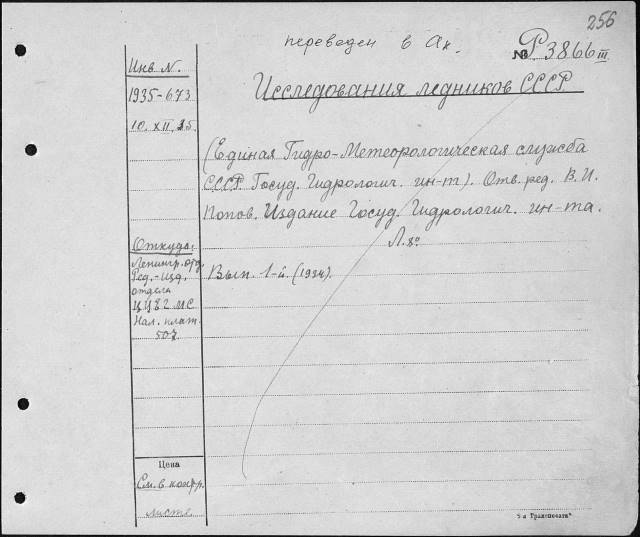 256
переведен в Ак.
№ Р 3866 III
Инв. N.
1935-673
10. XII. 35.
Исследования ледников СССР
(Единая Гидро-Метеорологическая служба
СССР Госуд. Гидрологич. ин-т). Отв. ред. В. И.
Попов. Издание Госуд. Гидрологич. ин-та.
Л. 8°
Откуда:
Ленингр. отд.
Ред.-Изд.
отдела
Нал. плат.
507
Вып. 1-й. (1934).
Цена
См. в копр.
листе.